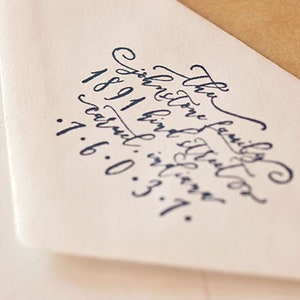 the
johnstone family
1891 hind street
carmel. indiana
.7.6.0.3.7.